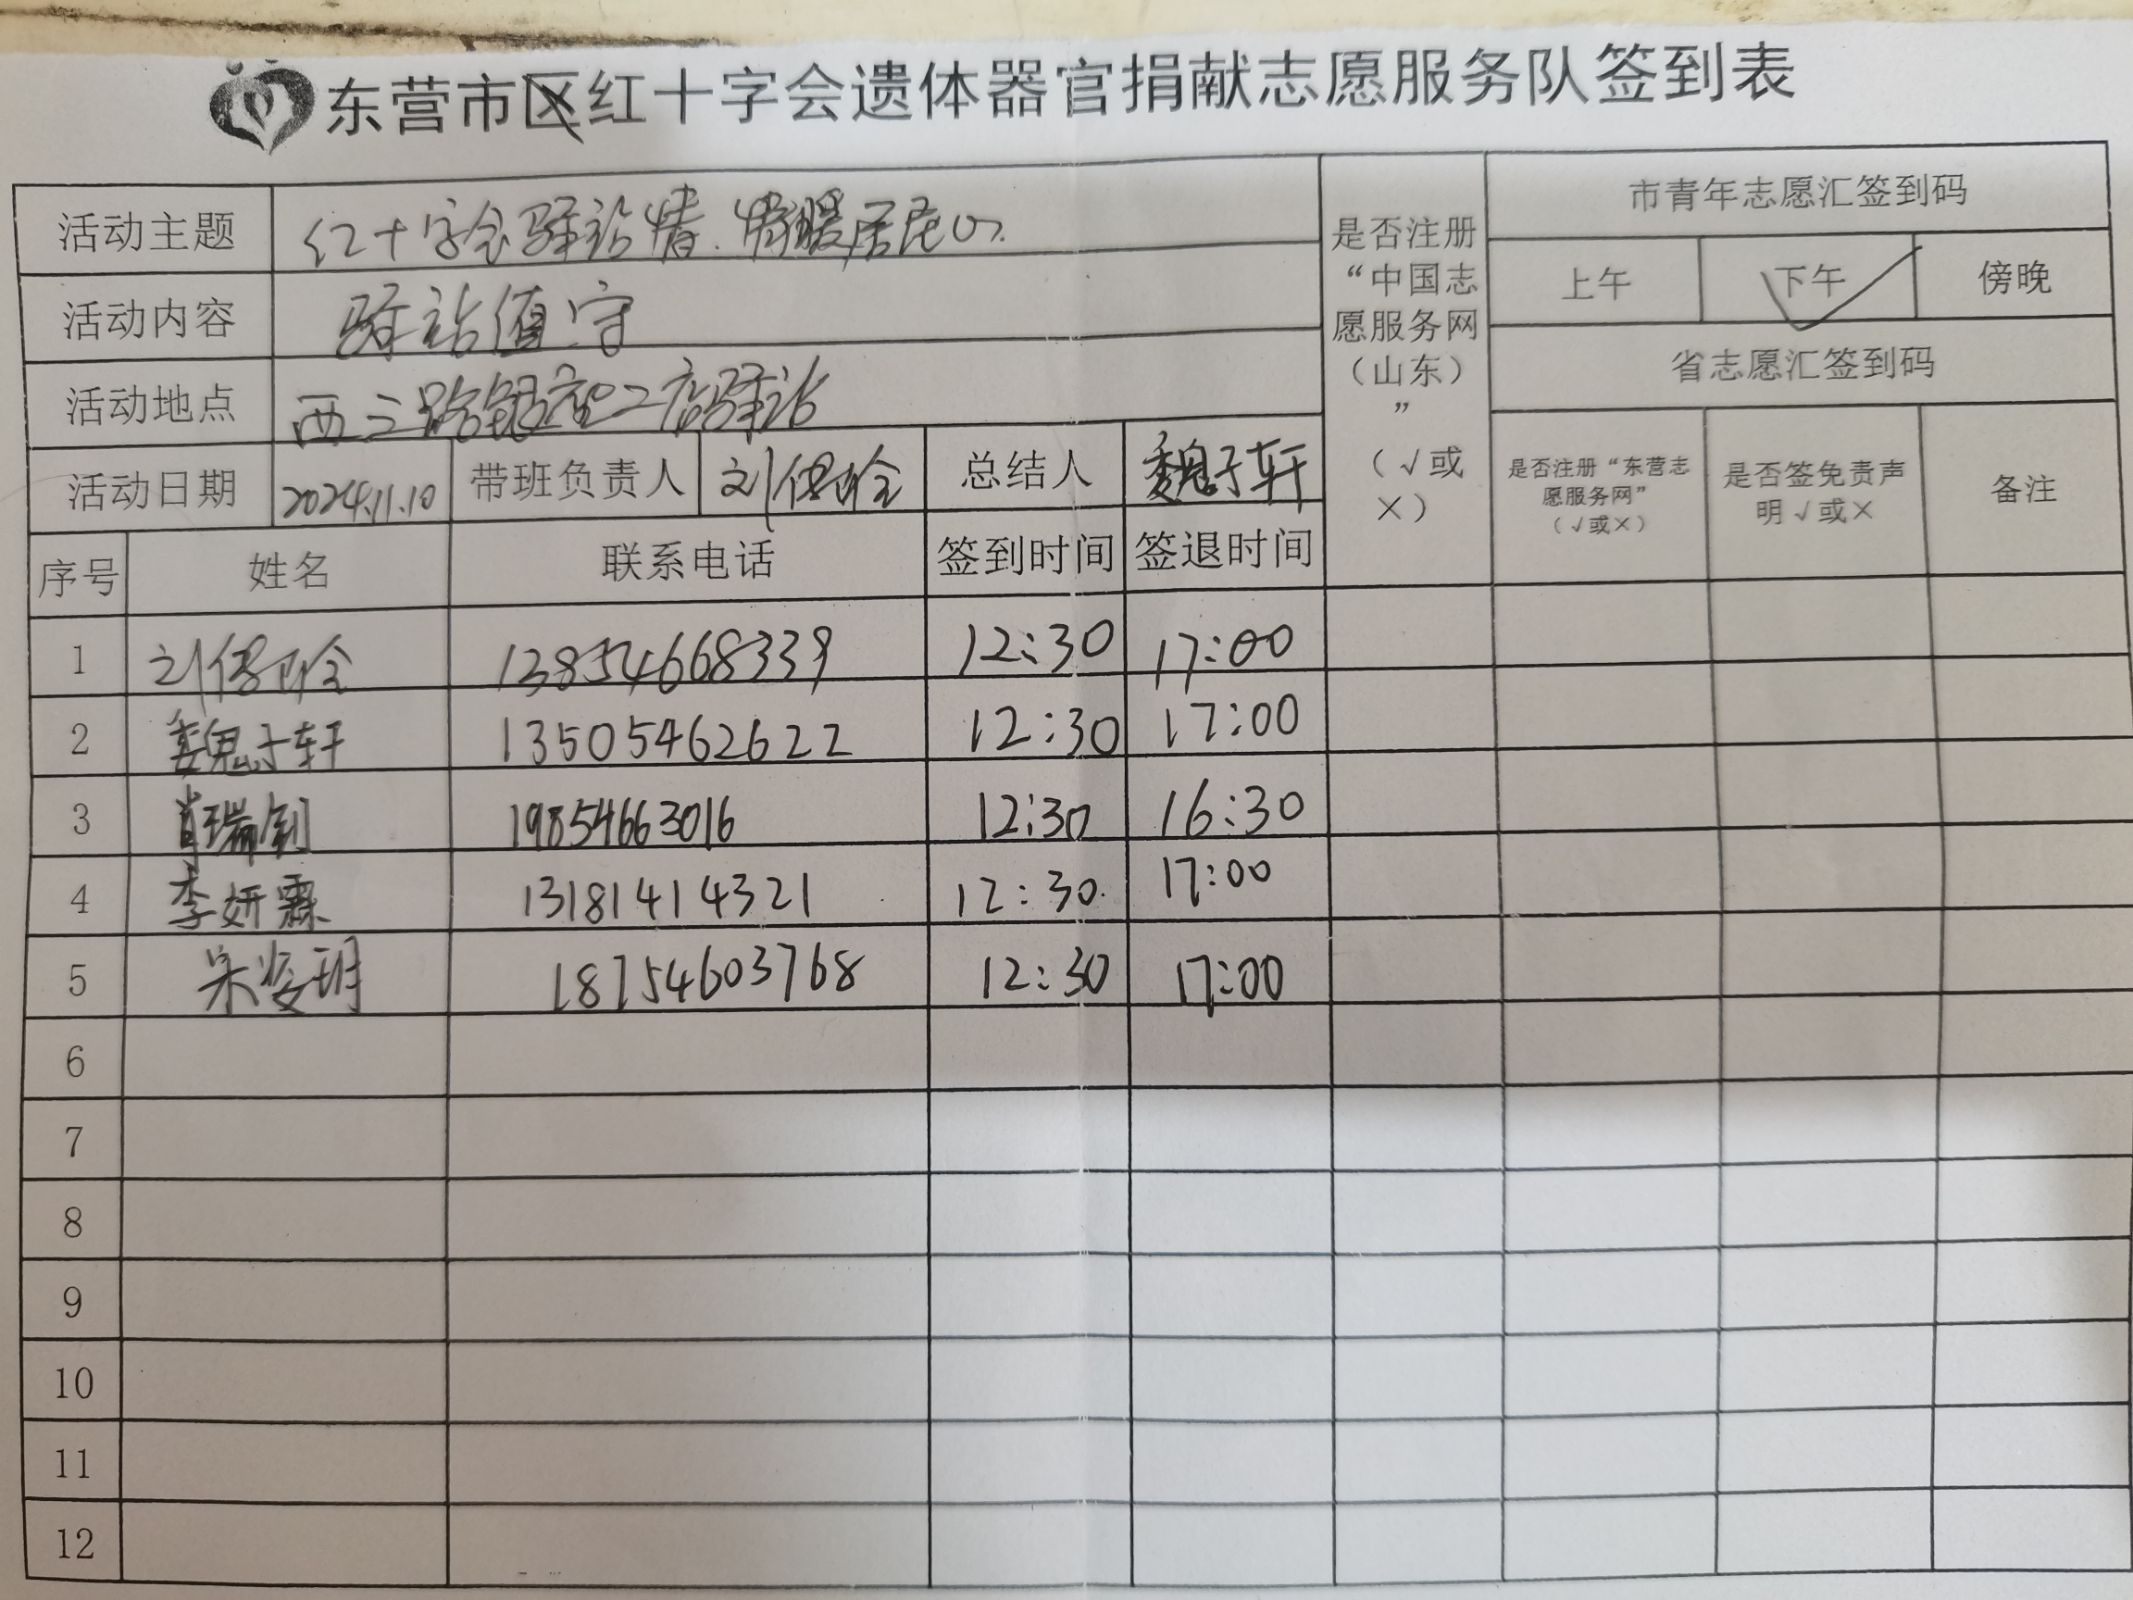 东营市区红十字会遗体器官捐献志愿服务队签到表
活动主题 红十字会驿站情.情暖居民心.
活动内容 驿站值守
活动地点 西三路银座二店驿站
是否注册“中国志愿服务网（山东）”（√或×）
市青年志愿汇签到码
上午 下午 傍晚
省志愿汇签到码
活动日期 2024.11.10 带班负责人 刘 总结人 魏子轩
是否注册“东营志愿服务网”（√或×） 是否签免责声明√或× 备注
序号 姓名 联系电话 签到时间 签退时间
1 刘 13854668339 12:30 17:00
2 魏子轩 13505462622 12:30 17:00
3 肖瑞钊 19854663016 12:30 16:30
4 李妍霖 13181414321 12:30 17:00
5 18754603768 12:30 17:00
6
7
8
9
10
11
12